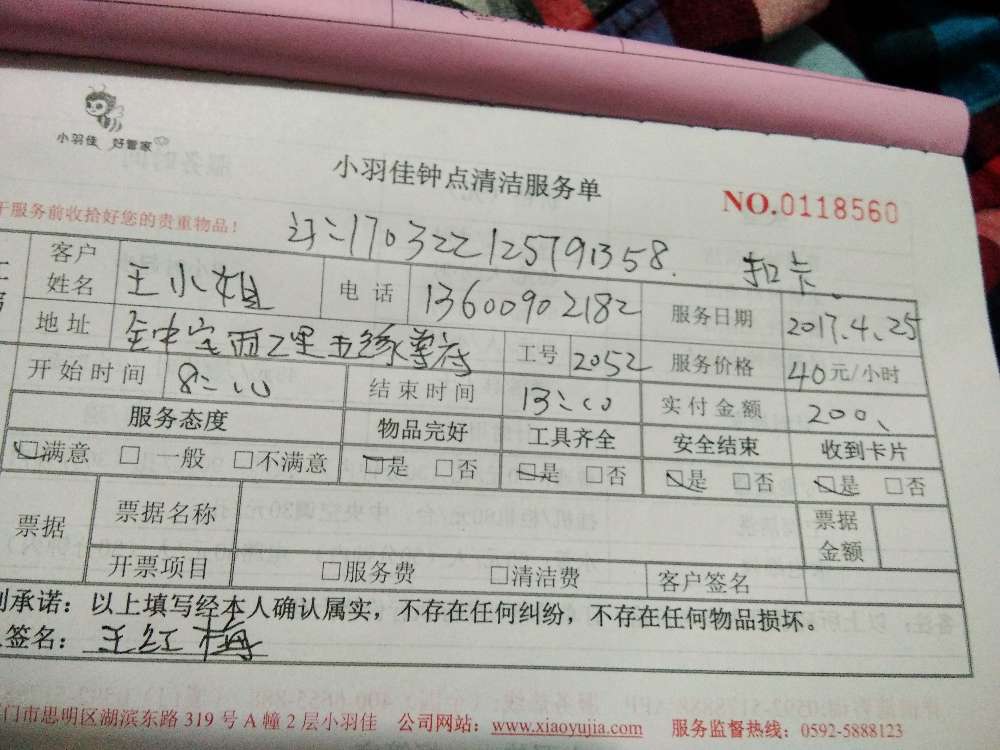 小羽佳 好管家
小羽佳钟点清洁服务单
NO.0118560
于服务前收拾好您的贵重物品!
170322125791358.
扣卡
客户姓名 王小姐 电话 13600902182 服务日期 2017.4.25
地址 五缘尊府 工号 2052 服务价格 40元/小时
开始时间 8:00 结束时间 13:00 实付金额 200
服务态度 物品完好 工具齐全 安全结束 收到卡片
□满意 □一般 □不满意 □是 □否 □是 □否 □是 □否 □是 □否
票据 票据名称 票据金额
开票项目 □服务费 □清洁费 客户签名
承诺:以上填写经本人确认属实,不存在任何纠纷,不存在任何物品损坏。
签名:王红梅
门市思明区湖滨东路 319 号 A 幢 2 层小羽佳 公司网站:www.xiaoyujia.com 服务监督热线:0592-5888123